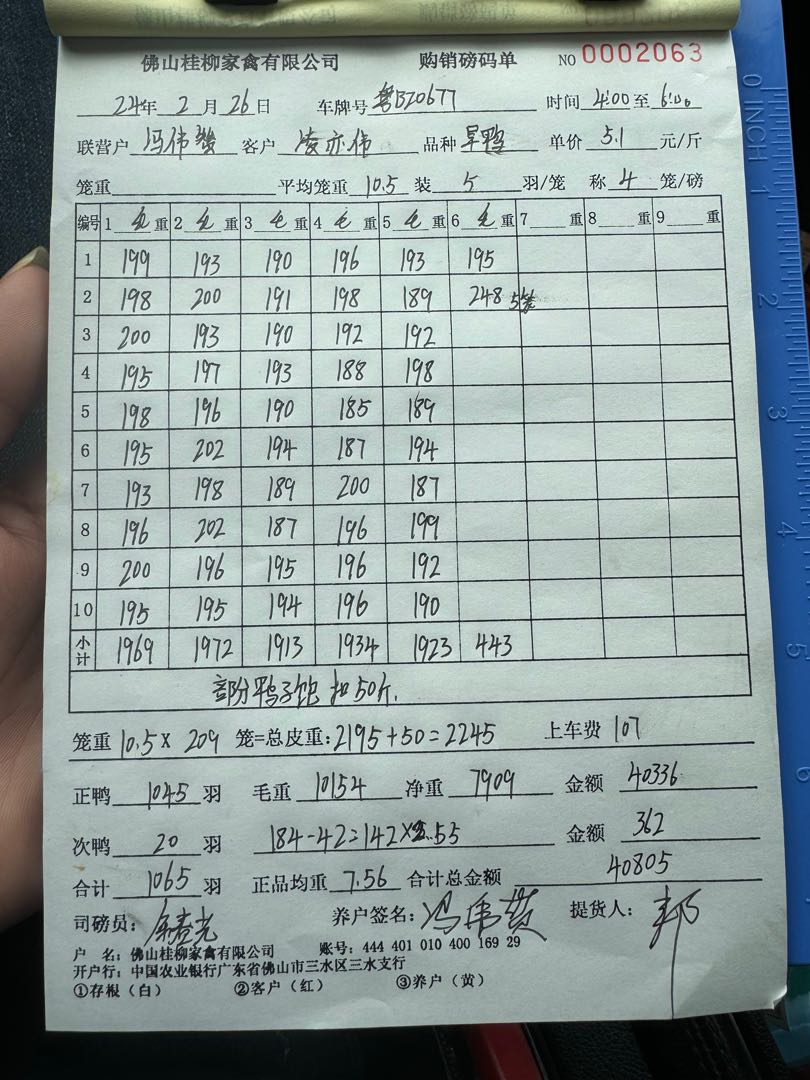 佛山桂柳家禽有限公司 购销磅码单 NO 0002063
24年 2月 26日 车牌号 粤BZ0677 时间 4:00 至 6:00
联营户 冯伟 客户 凌亦伟 品种 旱鸭 单价 5.1 元/斤
笼重 平均笼重 10.5 装 5 羽/笼 称 4 笼/磅
编号 1 毛 重 2 毛 重 3 毛 重 4 毛 重 5 毛 重 6 毛 重 7 重 8 重 9 重
1 199 193 190 196 193 195
2 198 200 191 198 189 248 5笼
3 200 193 190 192 192
4 195 197 193 188 198
5 198 196 190 185 189
6 195 202 194 187 194
7 193 198 189 200 187
8 196 202 187 196 199
9 200 196 195 196 192
10 195 195 194 196 190
小计 1969 1972 1913 1934 1923 443
部分鸭子饱 扣50斤.
笼重 10.5 × 209 笼=总皮重: 2195+50=2245 上车费 107
正鸭 1045 羽 毛重 10154 净重 7909 金额 40336
次鸭 20 羽 184-42=142×2.55 金额 362
合计 1065 羽 正品均重 7.56 合计总金额 40805
司磅员: 养户签名: 冯伟 提货人: 邦
户 名: 佛山桂柳家禽有限公司 账号: 444 401 010 400 169 29
开户行: 中国农业银行广东省佛山市三水区三水支行
①存根(白) ②客户(红) ③养户(黄)
0 INCH 1 2 3 4 5 6